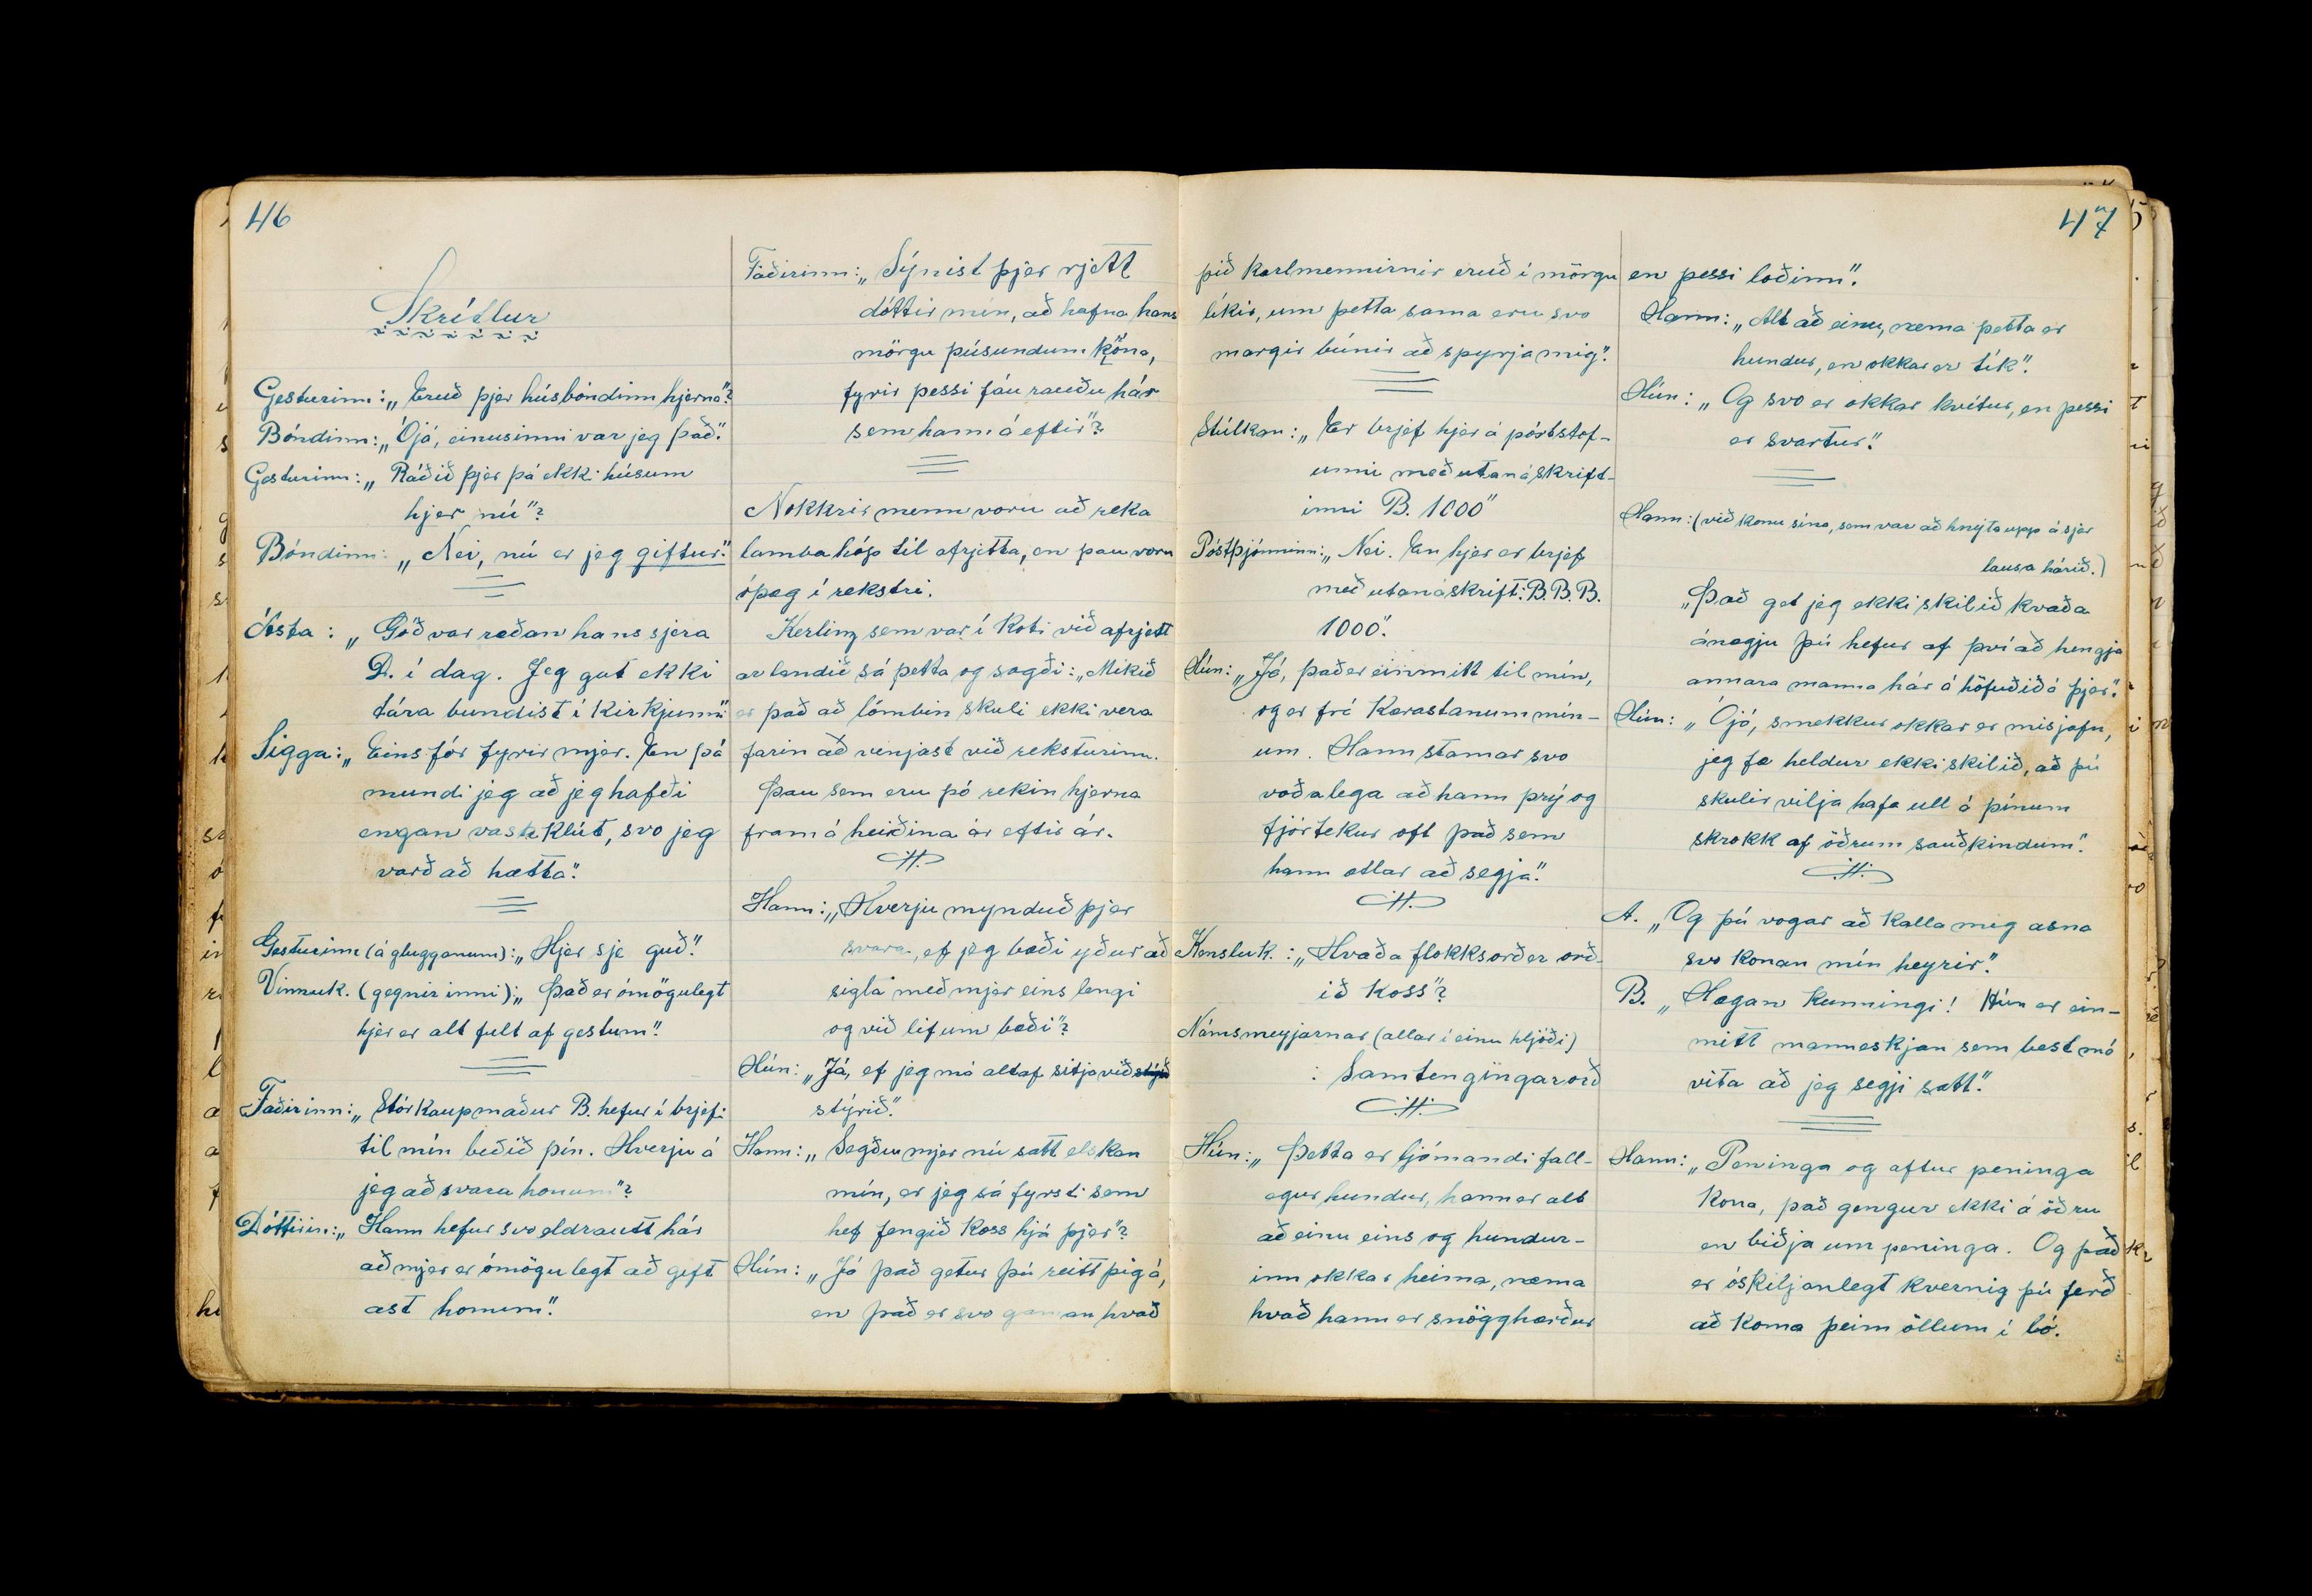 46
Skrítlur
Gesturinn: „Eruð þjer húsbóndinn hjerna"?
Bóndinn: „Ójá, einusinni var jeg það".
Gesturinn: „Ráðið þjer þá ekki húsum
hjer nú"?
Bóndinn: „Nei, nú er jeg giftur".
Ásta: „Góð var ræðan hans sjera
D. í dag. Jeg gat ekki
tára bundist í kirkjunni"
Sigga: „Eins fór fyrir mjer. En þá
mundi jeg að jeg hafði
engan vasaklút, svo jeg
varð að hætta".
Gesturinn (á glugganum): „Hjer sje guð".
Vinnuk. (gegnir inni): „Það er ómögulegt
hjer er alt fult af gestum".
Faðirinn: „Stórkaupmaður B. hefur í brjefi
til mín beðið þín. Hverju á
jeg að svara honum"?
Dóttirin: „Hann hefur svo eldrautt hár
að mjer er ómögulegt að gift
ast honum".
Faðirinn: „Sýnist þjer rjett
dóttir mín, að hafna hans
mörgu þúsundum króna,
fyrir þessi fáu rauðu hár
sem hann á eftir"?
Nokkrir menn voru að reka
lambahóp til afrjetta, en þau voru
óþæg í rekstri.
Kerling sem var í koti við afrjett
arlandið sá þetta og sagði: „Mikið
er það að lömbin skuli ekki vera
farin að venjast við reksturinn.
Þau sem eru þó rekin hjerna
fram á heiðina ár eftir ár.
·H·
Hann: „Hverju mynduð þjer
svara, ef jeg bæði yður að
sigla með mjer eins lengi
og við lifum bæði"?
Hún: „Já, ef jeg má altaf sitja við
stýrið".
Hann: „Segðu mjer nú satt elskan
mín, er jeg sá fyrsti sem
hef fengið koss hjá þjer"?
Hún: „Já það getur þú reitt þig á,
en það er svo gaman hvað
47
þið karlmennirnir eruð í mörgu
líkir, um þetta sama eru svo
margir búnir að spyrja mig".
Stúlkan: „Er brjef hjer á póststof-
unni með utanáskrift-
inni B. 1000"
Póstþjónninn: „Nei. En hjer er brjef
með utanáskrift: B.B.B.
1000".
Hún: „Já, það er einmitt til mín,
og er frá kærastanum mín-
um. Hann stamar svo
voðalega að hann þrý og
fjórtekur oft það sem
hann ætlar að segja".
·H·
Kensluk.: „Hvaða flokksorð er orð-
ið koss"?
Námsmeyjarnar (allar í einu hljóði)
: Samtengingarorð
·H·
Hún: „Þetta er ljómandi fall-
egur hundur, hann er alt
að einu eins og hundur-
inn okkar heima, nema
hvað hann er snögghærður
en þessi loðinn".
Hann: „Alt að einu, nema þetta er
hundur, en okkar er tík".
Hún: „Og svo er okkar hvítur, en þessi
er svartur".
Hann: (við konu sína, sem var að hnýta upp á sjer
lausa hárið.)
„Það get jeg ekki skilið hvaða
ánægju þú hefur af því að hengja
annara manna hár á höfuðið á þjer".
Hún: „Ójá, smekkur okkar er misjafn,
jeg fæ heldur ekki skilið, að þú
skulir vilja hafa ull á þínum
skrokk af öðrum sauðkindum".
·H·
A. „Og þú vogar að kalla mig asna
svo konan mín heyrir".
B. „Hægan kunningi! Hún er ein-
mitt manneskjan sem best má
vita að jeg segji satt".
Hann: „Peninga og aftur peninga
kona, það gengur ekki á öðru
en biðja um peninga. Og það
er óskiljanlegt hvernig þú ferð
að koma þeim öllum í ló.